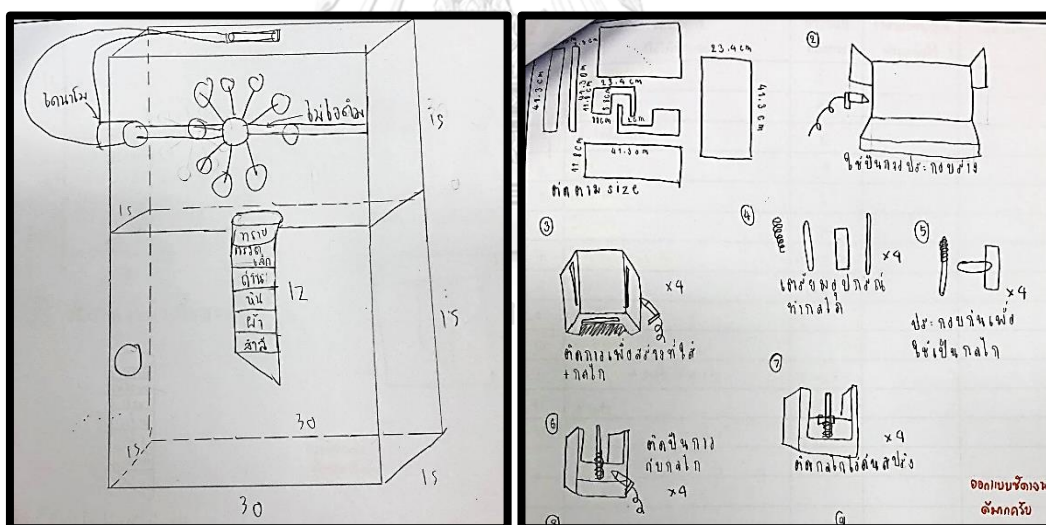 ไดนาโม
ไม้ไอติม
15
15
ทราย
กรวด
เล็ก
ถ่าน
หิน
ผ้า
สำลี
12
15
30
15
15
30
41.3 cm
23.4 cm
11.8 cm
41.30 cm
ตัดตาม size
23.4 cm
41.3 cm
②
ใช้ปืนกาวประกอบร่าง
③
×4
ติดกาวเพื่อสร้างที่ใส่
+กลไก
④
×4
เตรียมอุปกรณ์
ทำกลไก
⑤
×4
ประกอบกันเพื่อ
ใช้เป็นกลไก
⑥
ติดปืนกาว
กับกลไก
×4
⑦
×4
ออกแบบชัดเจน
ดีมากครับ